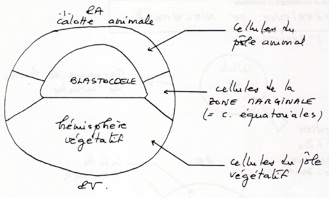 PA
calotte animale
cellules du
pôle animal
BLASTOCOELE
cellules de la
ZONE MARGINALE
(= c. équatoriales)
hémisphère
végétatif
cellules du pôle
végétatif
PV.